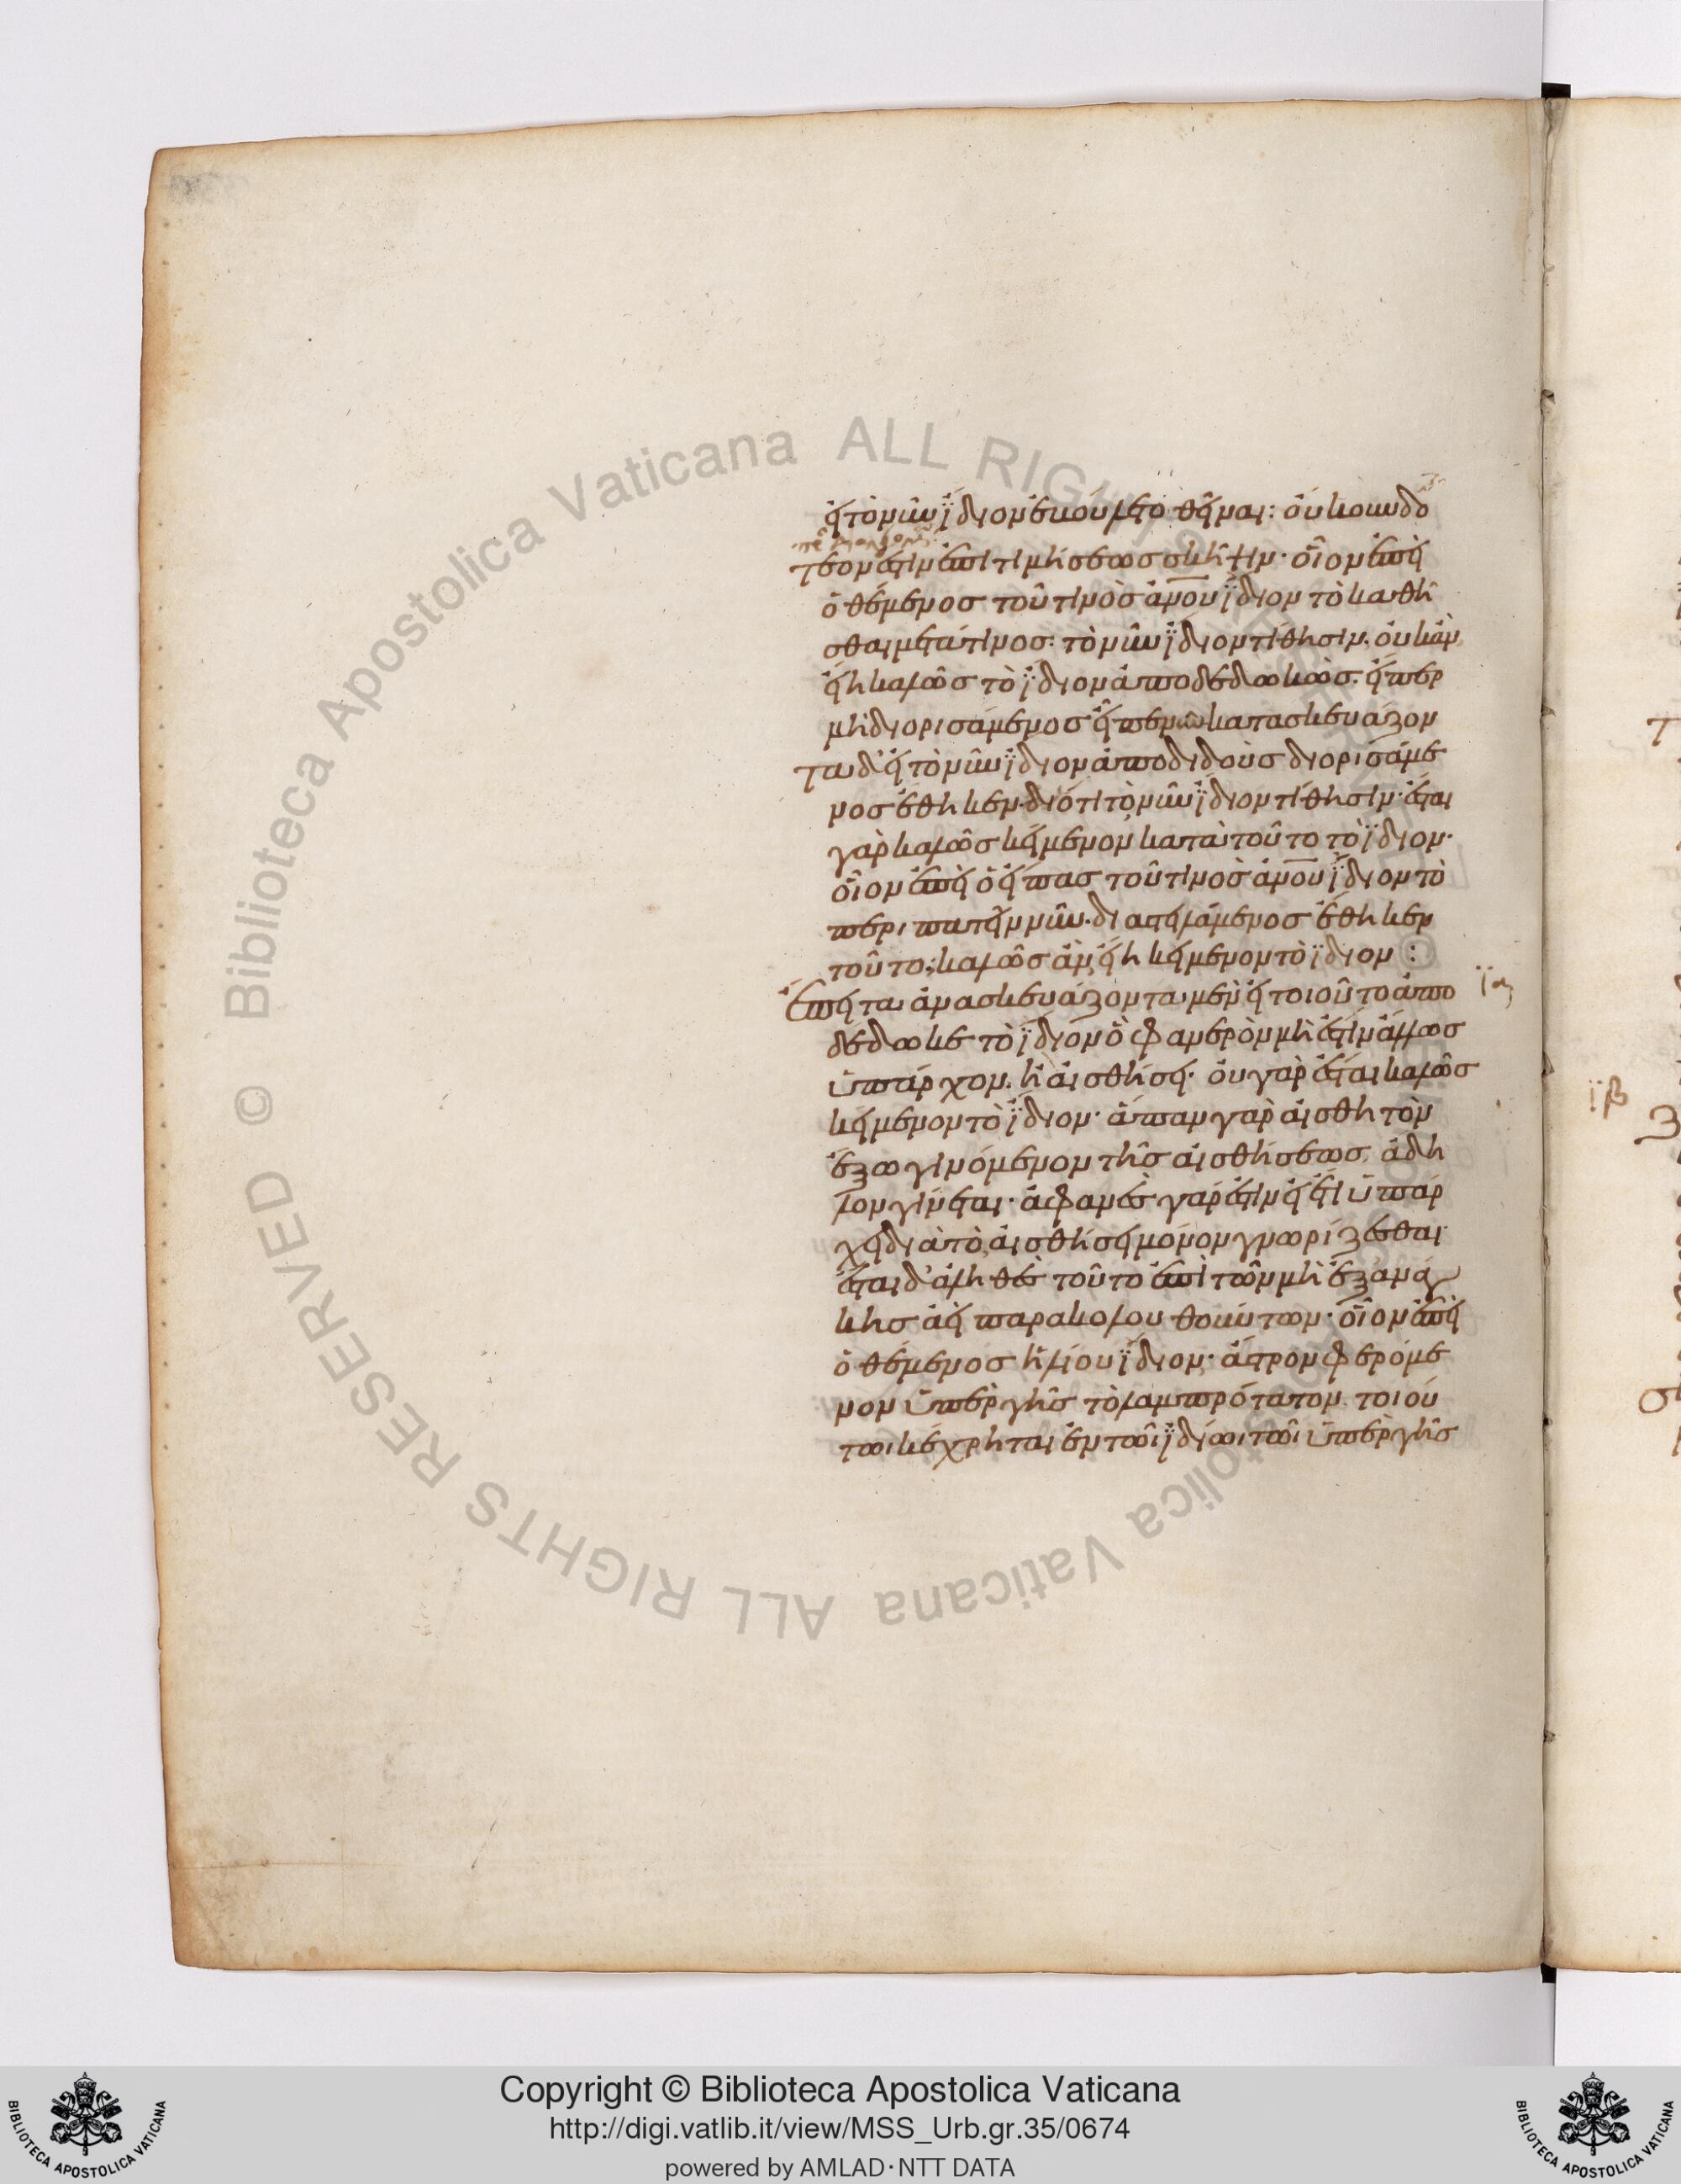 εἰ τὸ νῦν ἴδιον ἐβούλετο θεῖναι: οὐκοῦν δο
τέον ἐστὶν ἐπιτιμήσεως σκῆψιν· οἷον ἐπεὶ
ὁ θέμενος τοῦ τινὸς ἀνου ἴδιον τὸ καθῆ
σθαι μετά τινος: τὸ νῦν ἴδιον τίθησιν. οὐκ ἂν
εἴη καλῶς τὸ ἴδιον ἀποδεδωκώς. εἴπερ
μὴ διορισάμενος εἶπεν κατασκευάζον
τα δ' εἰ τὸ νῦν ἴδιον ἀποδιδοὺς διορισάμε
νος ἔθηκεν. διότι τὸ νῦν ἴδιον τίθησιν· ἔσται
γὰρ καλῶς κείμενον κατὰ τοῦτο τὸ ἴδιον·
οἷον ἐπεὶ ὁ εἴπας τοῦ τινὸς ἀνου ἴδιον τὸ
περιπατεῖν νῦν. διαστειλάμενος ἔθηκεν
τοῦτο· καλῶς ἂν εἴη κείμενον τὸ ἴδιον :
ἔπειτα ἀνασκευάζοντα μὲν εἰ τοιοῦτο ἀπο
ια
δέδωκε τὸ ἴδιον ὃ φανερὸν μή ἐστιν ἄλλως
ὑπάρχον. ἢ αἰσθήσει· οὐ γὰρ ἔσται καλῶς
κείμενον τὸ ἴδιον· ἅπαν γὰρ αἰσθητὸν
ἔξω γινόμενον τῆς αἰσθήσεως ἄδη
λον γίνεται· ἀφανὲς γάρ ἐστιν εἰ ἔτι ὑπάρ
χει διὰ τὸ αἰσθήσει μόνον γνωρίζεσθαι
ἔσται δ' ἀληθὲς τοῦτο ἐπὶ τῶν μὴ ἐξ ἀνάγ
κης ἀεὶ παρακολουθούντων· οἷον ἐπεὶ
ὁ θέμενος ἡλίου ἴδιον· ἄστρον φερόμε
νον ὑπὲρ γῆς τὸ λαμπρότατον τοιού
τωι κέχρηται ἐν τῶι ἰδίωι τῶι ὑπὲρ γῆς
ιβ
BIBLIOTECA APOSTOLICA VATICANA
© Biblioteca Apostolica Vaticana ALL RIGHTS RESERVED
Copyright © Biblioteca Apostolica Vaticana
http://digi.vatlib.it/view/MSS_Urb.gr.35/0674
powered by AMLAD·NTT DATA
BIBLIOTECA APOSTOLICA VATICANA